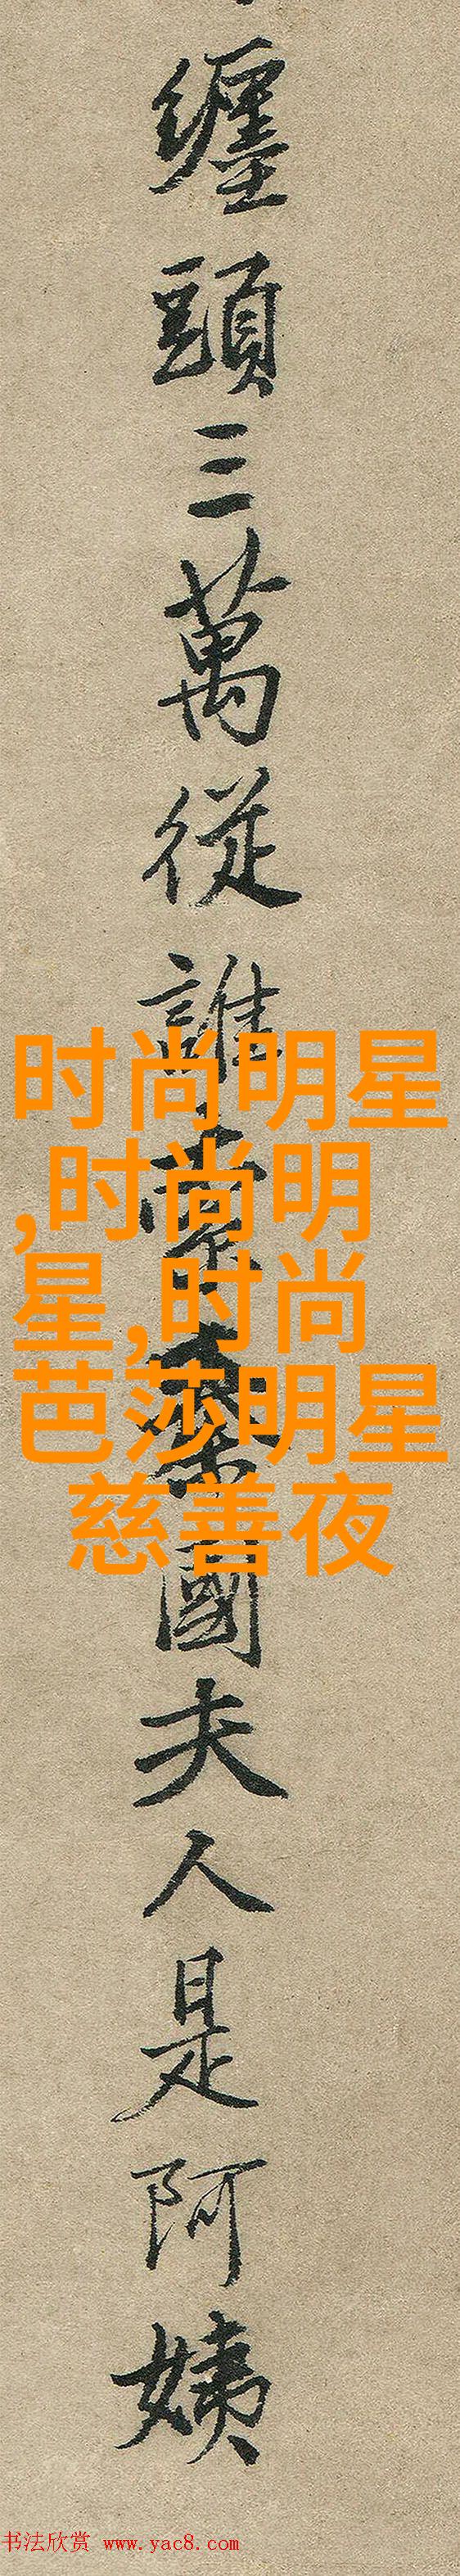 纏頭三萬從誰賞秦國夫人是阿姨
时尚明星
,时尚明
星,时尚
芭莎明星
慈善夜
书法欣赏 www.yac8.com